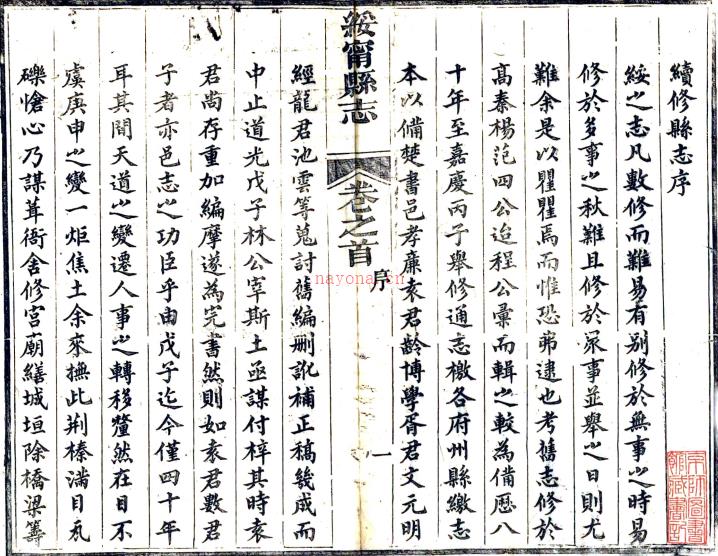 續修縣志序
綏之志凡數修而難易有別修於無事之時易
修於多事之秋難且修於眾事並舉之日則尤
難余是以瞿瞿焉而惟恐弗逮也考舊志修於
髙秦楊范四公迨程公彙而輯之較為備歷八
十年至嘉慶丙子舉修通志檄各府州縣繳志
本以備楚書邑孝廉袁君齡博學胥君文元明
綏甯縣志
卷之首
序
一
經龍君池雲等蒐討舊編刪訛補正稿幾成而
中止道光戊子林公宰斯土亟謀付梓其時袁
君尚存重加編摩遂為完書然則如袁君數君
子者亦邑志之功臣乎由戊子迄今僅四十年
耳其間天道之變遷人事之轉移釐然在目不
虞庚申之變一炬焦土余來撫此荆榛滿目瓦
礫愴心乃謀葺衙舍修宮廟繕城垣除橋梁籌
nayona.cn
京師圖書
館藏書記